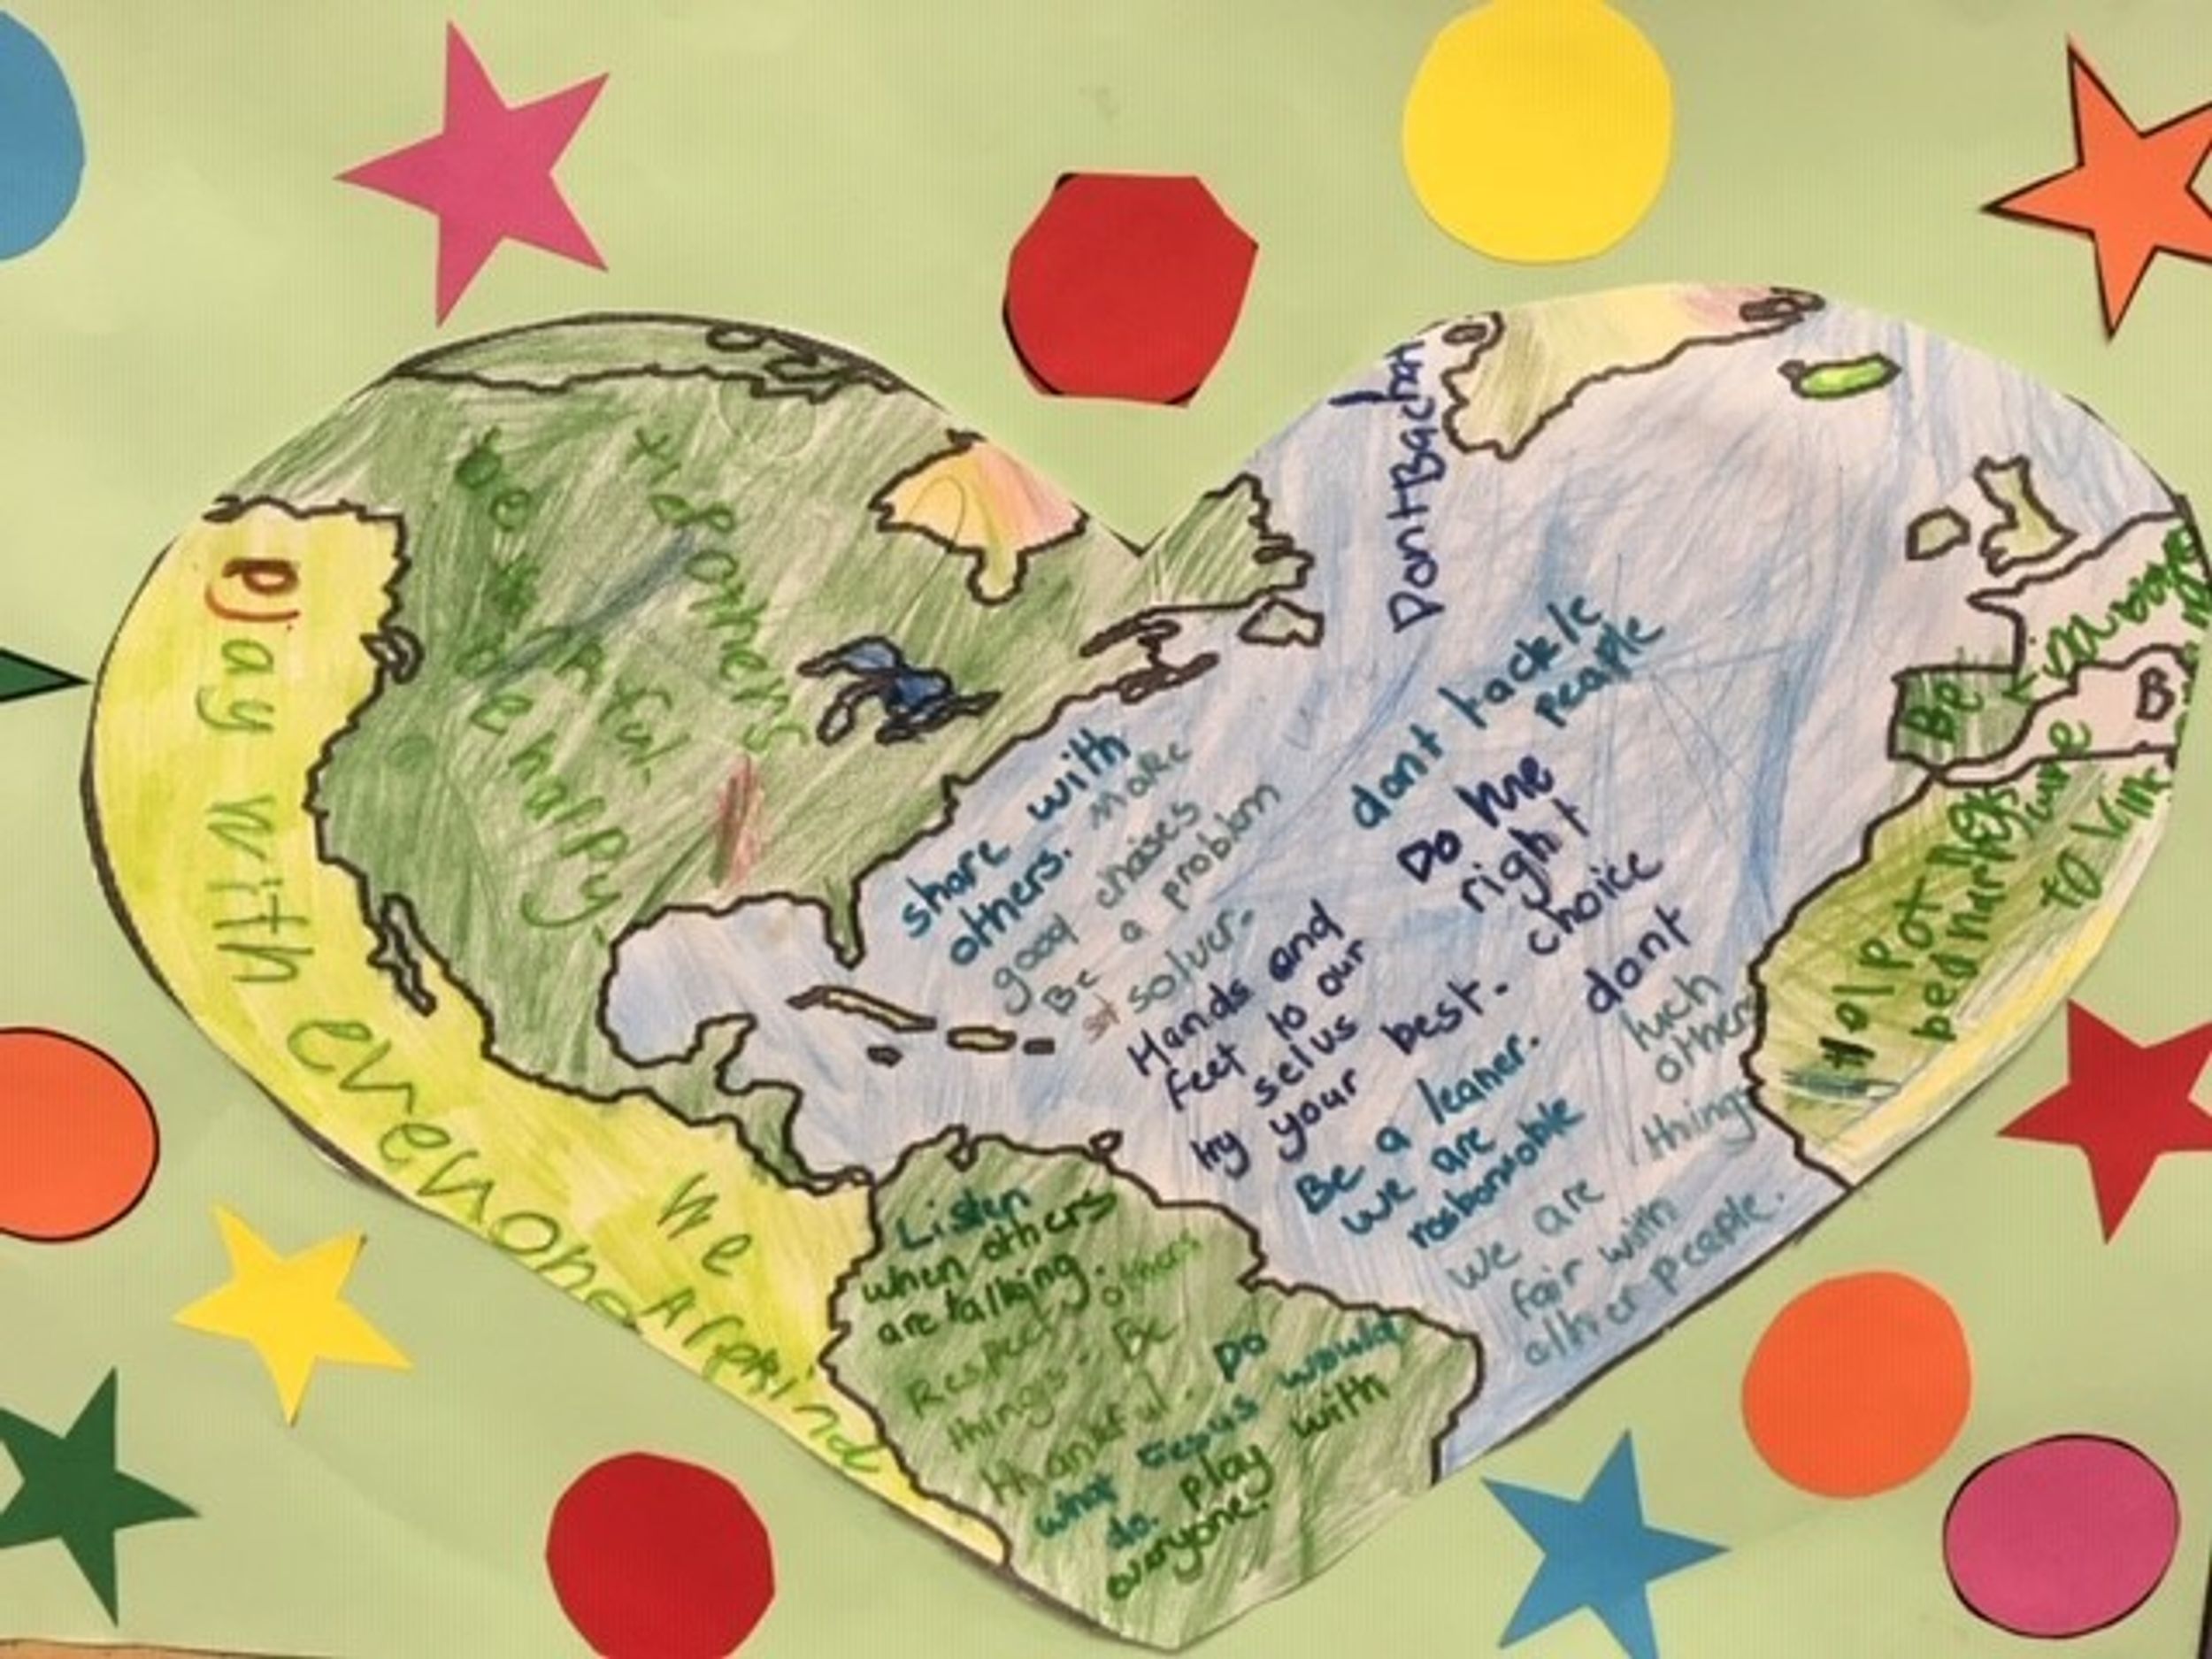 Play with evenone
We
be
xidponers
be happy
Dont Back chat
dont tackle
people
share with
others. make
good choises
Be a problem
solver.
Do the
right
choice
Hands and
feet to our
selvs
try your best.
Be a leaner.
we are
rosbonsoble
dont
tuch
others
things
we are
fair with
other people.
Listen
when others
are talking.
Respect others
things. Be
thankful. Do
what Jesus would
do. play with
everyone!
Be
B